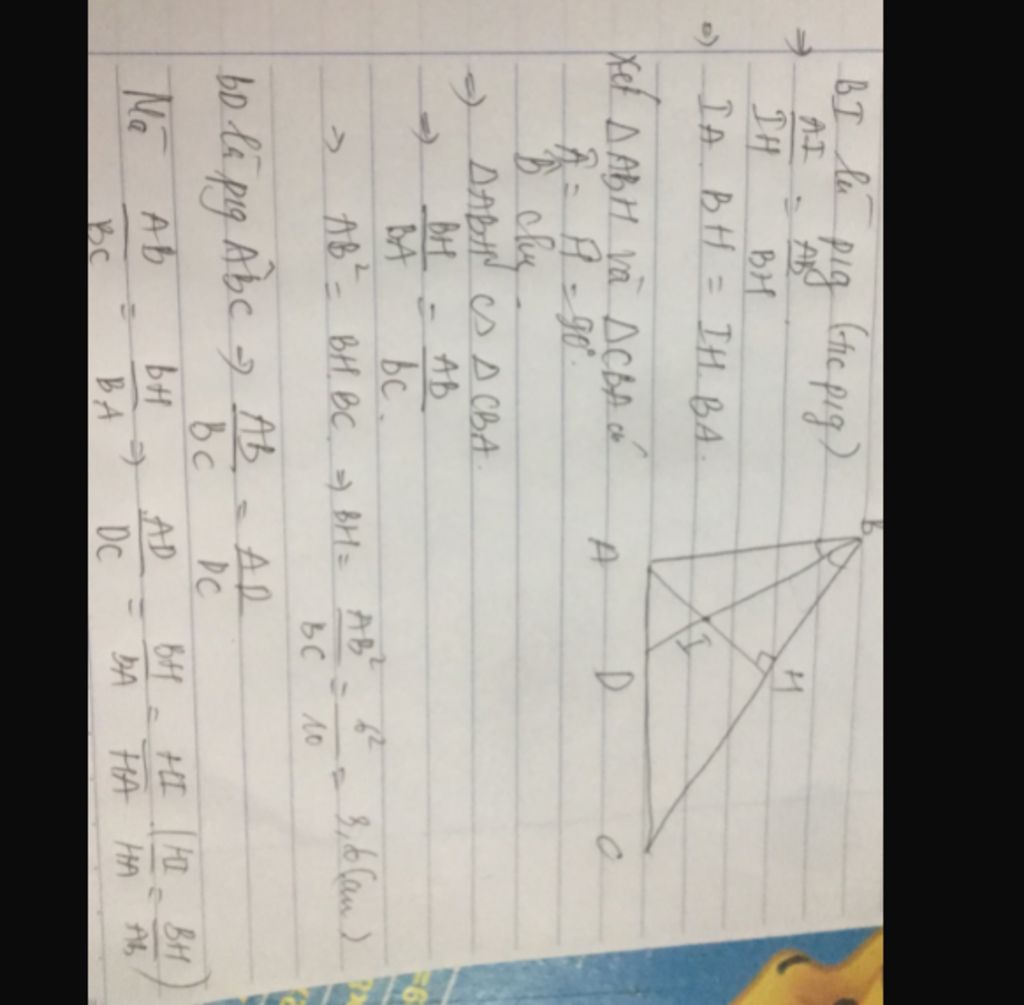 BI là pjg (t/c pjg)
⇒ AI/IH = AB/BH
⇒ IA . BH = IH . BA.
Xét ΔABH và ΔCBA có
Â = Ĥ = 90°.
B̂ chung.
⇒ ΔABH ∽ ΔCBA.
⇒ BH/BA = AB/BC.
⇒ AB² = BH.BC. ⇒ BH = AB²/BC = 6²/10 = 3,6(cm)
BD là pjg ABC ⇒ AB/BC = AD/DC
Mà AB/BC = BH/BA ⇒ AD/DC = BH/BA = HI/HA (HI/HA = BH/AB)
B
A
I
H
D
C